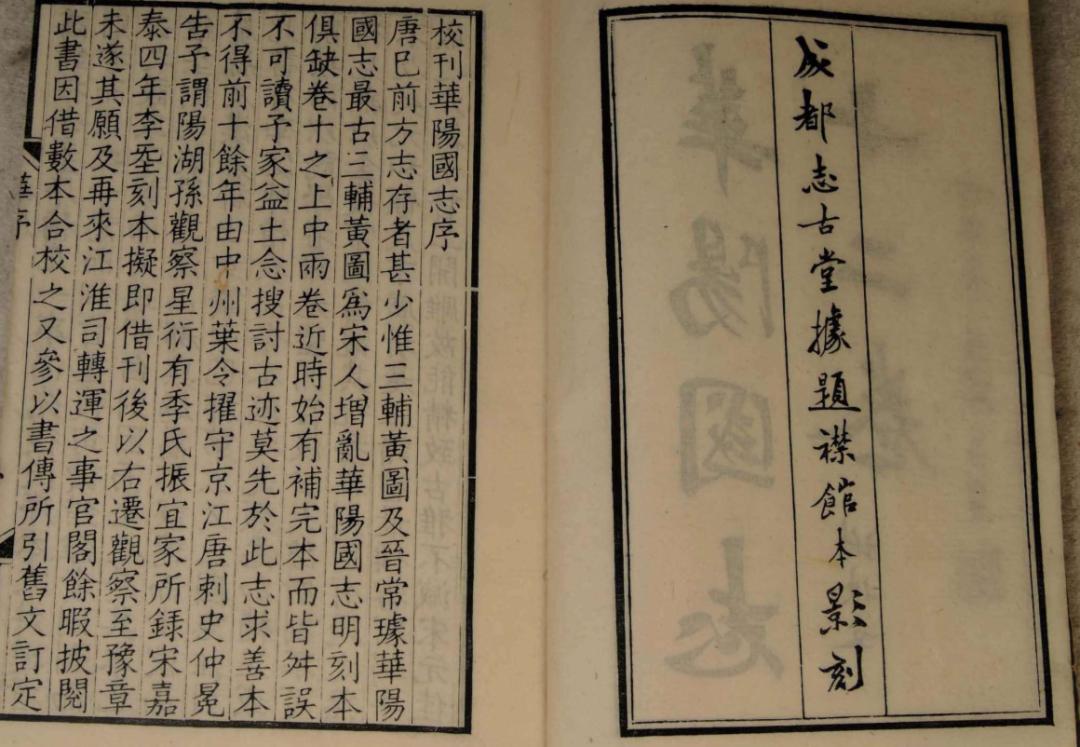 成都志古堂據題襟館本影刻
校刊華陽國志序
唐已前方志存者甚少惟三輔黃圖及晉常璩華陽
國志最古三輔黃圖爲宋人增亂華陽國志明刻本
俱缺卷十之上中兩卷近時始有補完本而皆舛誤
不可讀予家益土念搜討古迹莫先於此志求善本
不得前十餘年由中州葉令擢守京江唐刺史仲冕
告予謂陽湖孫觀察星衍有季氏振宜家所錄宋嘉
泰四年李𡌴刻本擬即借刊後以右遷觀察至豫章
未遂其願及再來江淮司轉運之事官閣餘暇披閱
此書因借數本合校之又參以書傳所引舊文訂定
華序